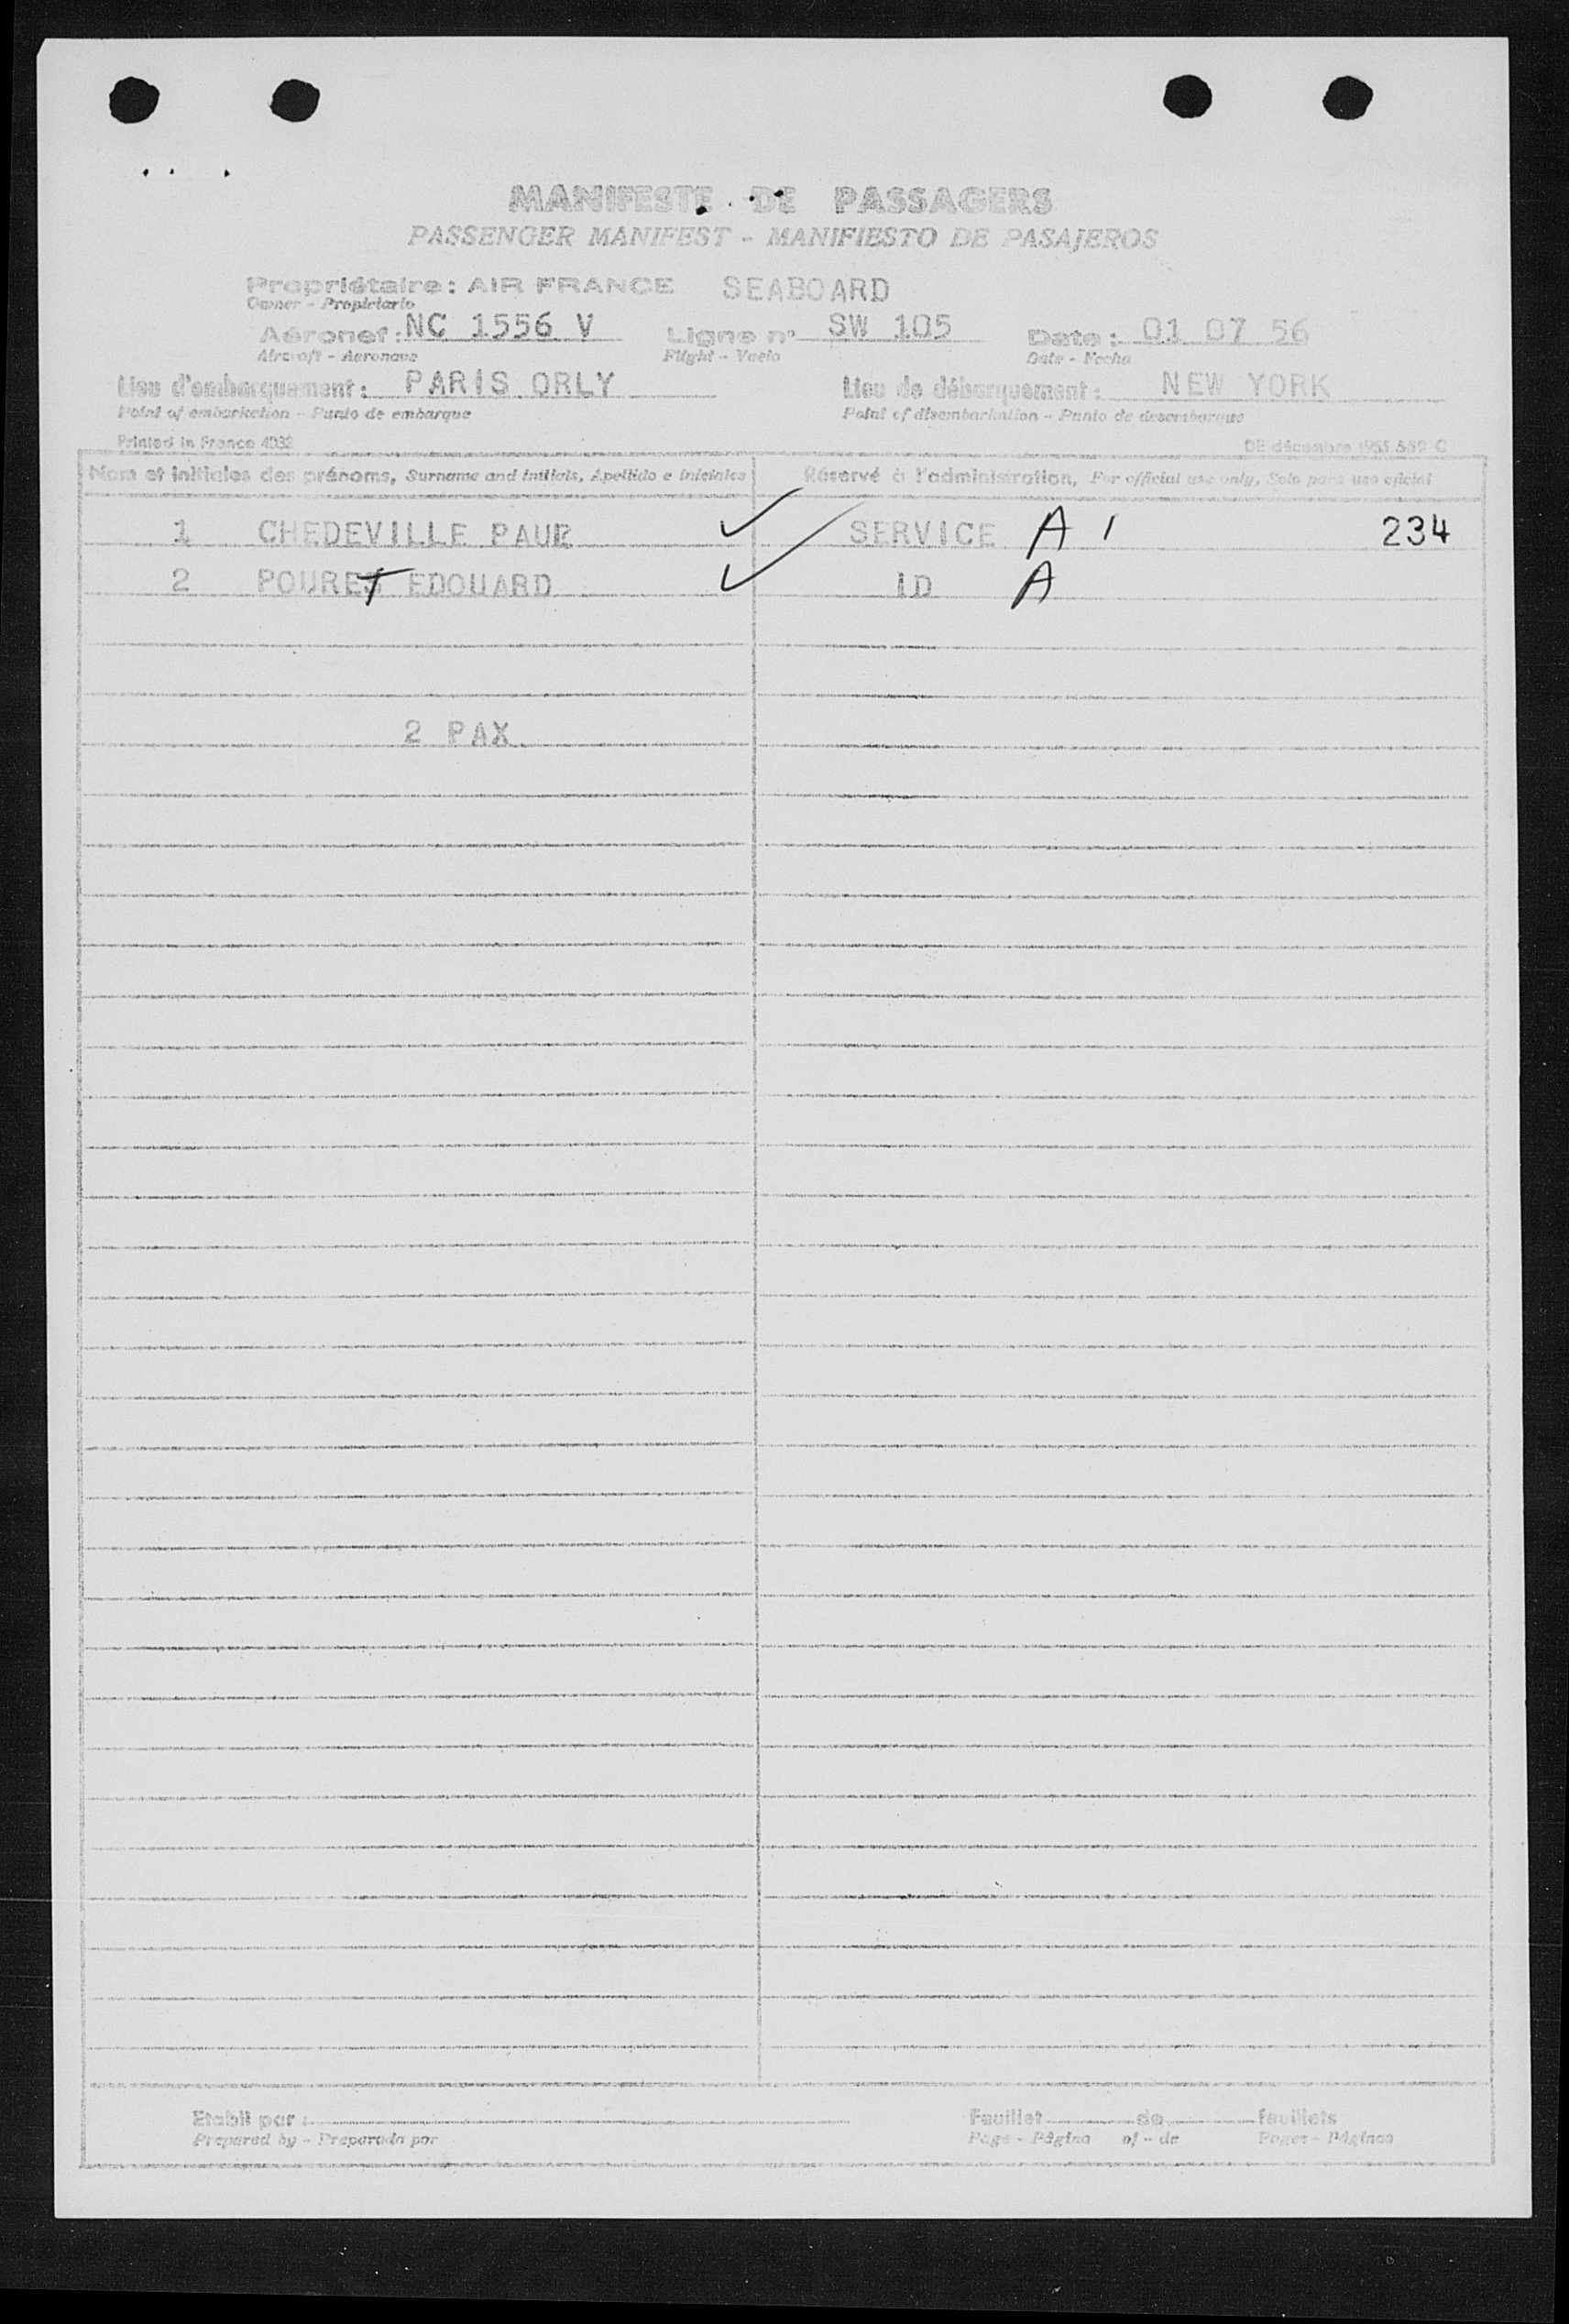 MANIFESTE DE PASSAGERS
PASSENGER MANIFEST - MANIFIESTO DE PASAJEROS
Propriétaire : AIR FRANCE SEABOARD
Owner - Propietario
Aéronef : NC 1556 V Ligne n° SW 105 Date : 01 07 56
Aircraft - Aeronave Flight - Vuelo Date - Fecha
Lieu d'embarquement : PARIS ORLY Lieu de débarquement : NEW YORK
Point of embarkation - Punto de embarque Point of disembarkation - Punto de desembarque
Printed in France 4032 DE décembre 1955
Nom et initiales des prénoms, Surname and initials, Apellido e iniciales Réservé à l'administration, For official use only, Solo para uso oficial
1 CHEDEVILLE PAUL SERVICE A 1 234
2 POURET EDOUARD ID A
2 PAX
Etabli par : Feuillet de feuillets
Prepared by - Preparado por Page - Página of - de Pages - Páginas